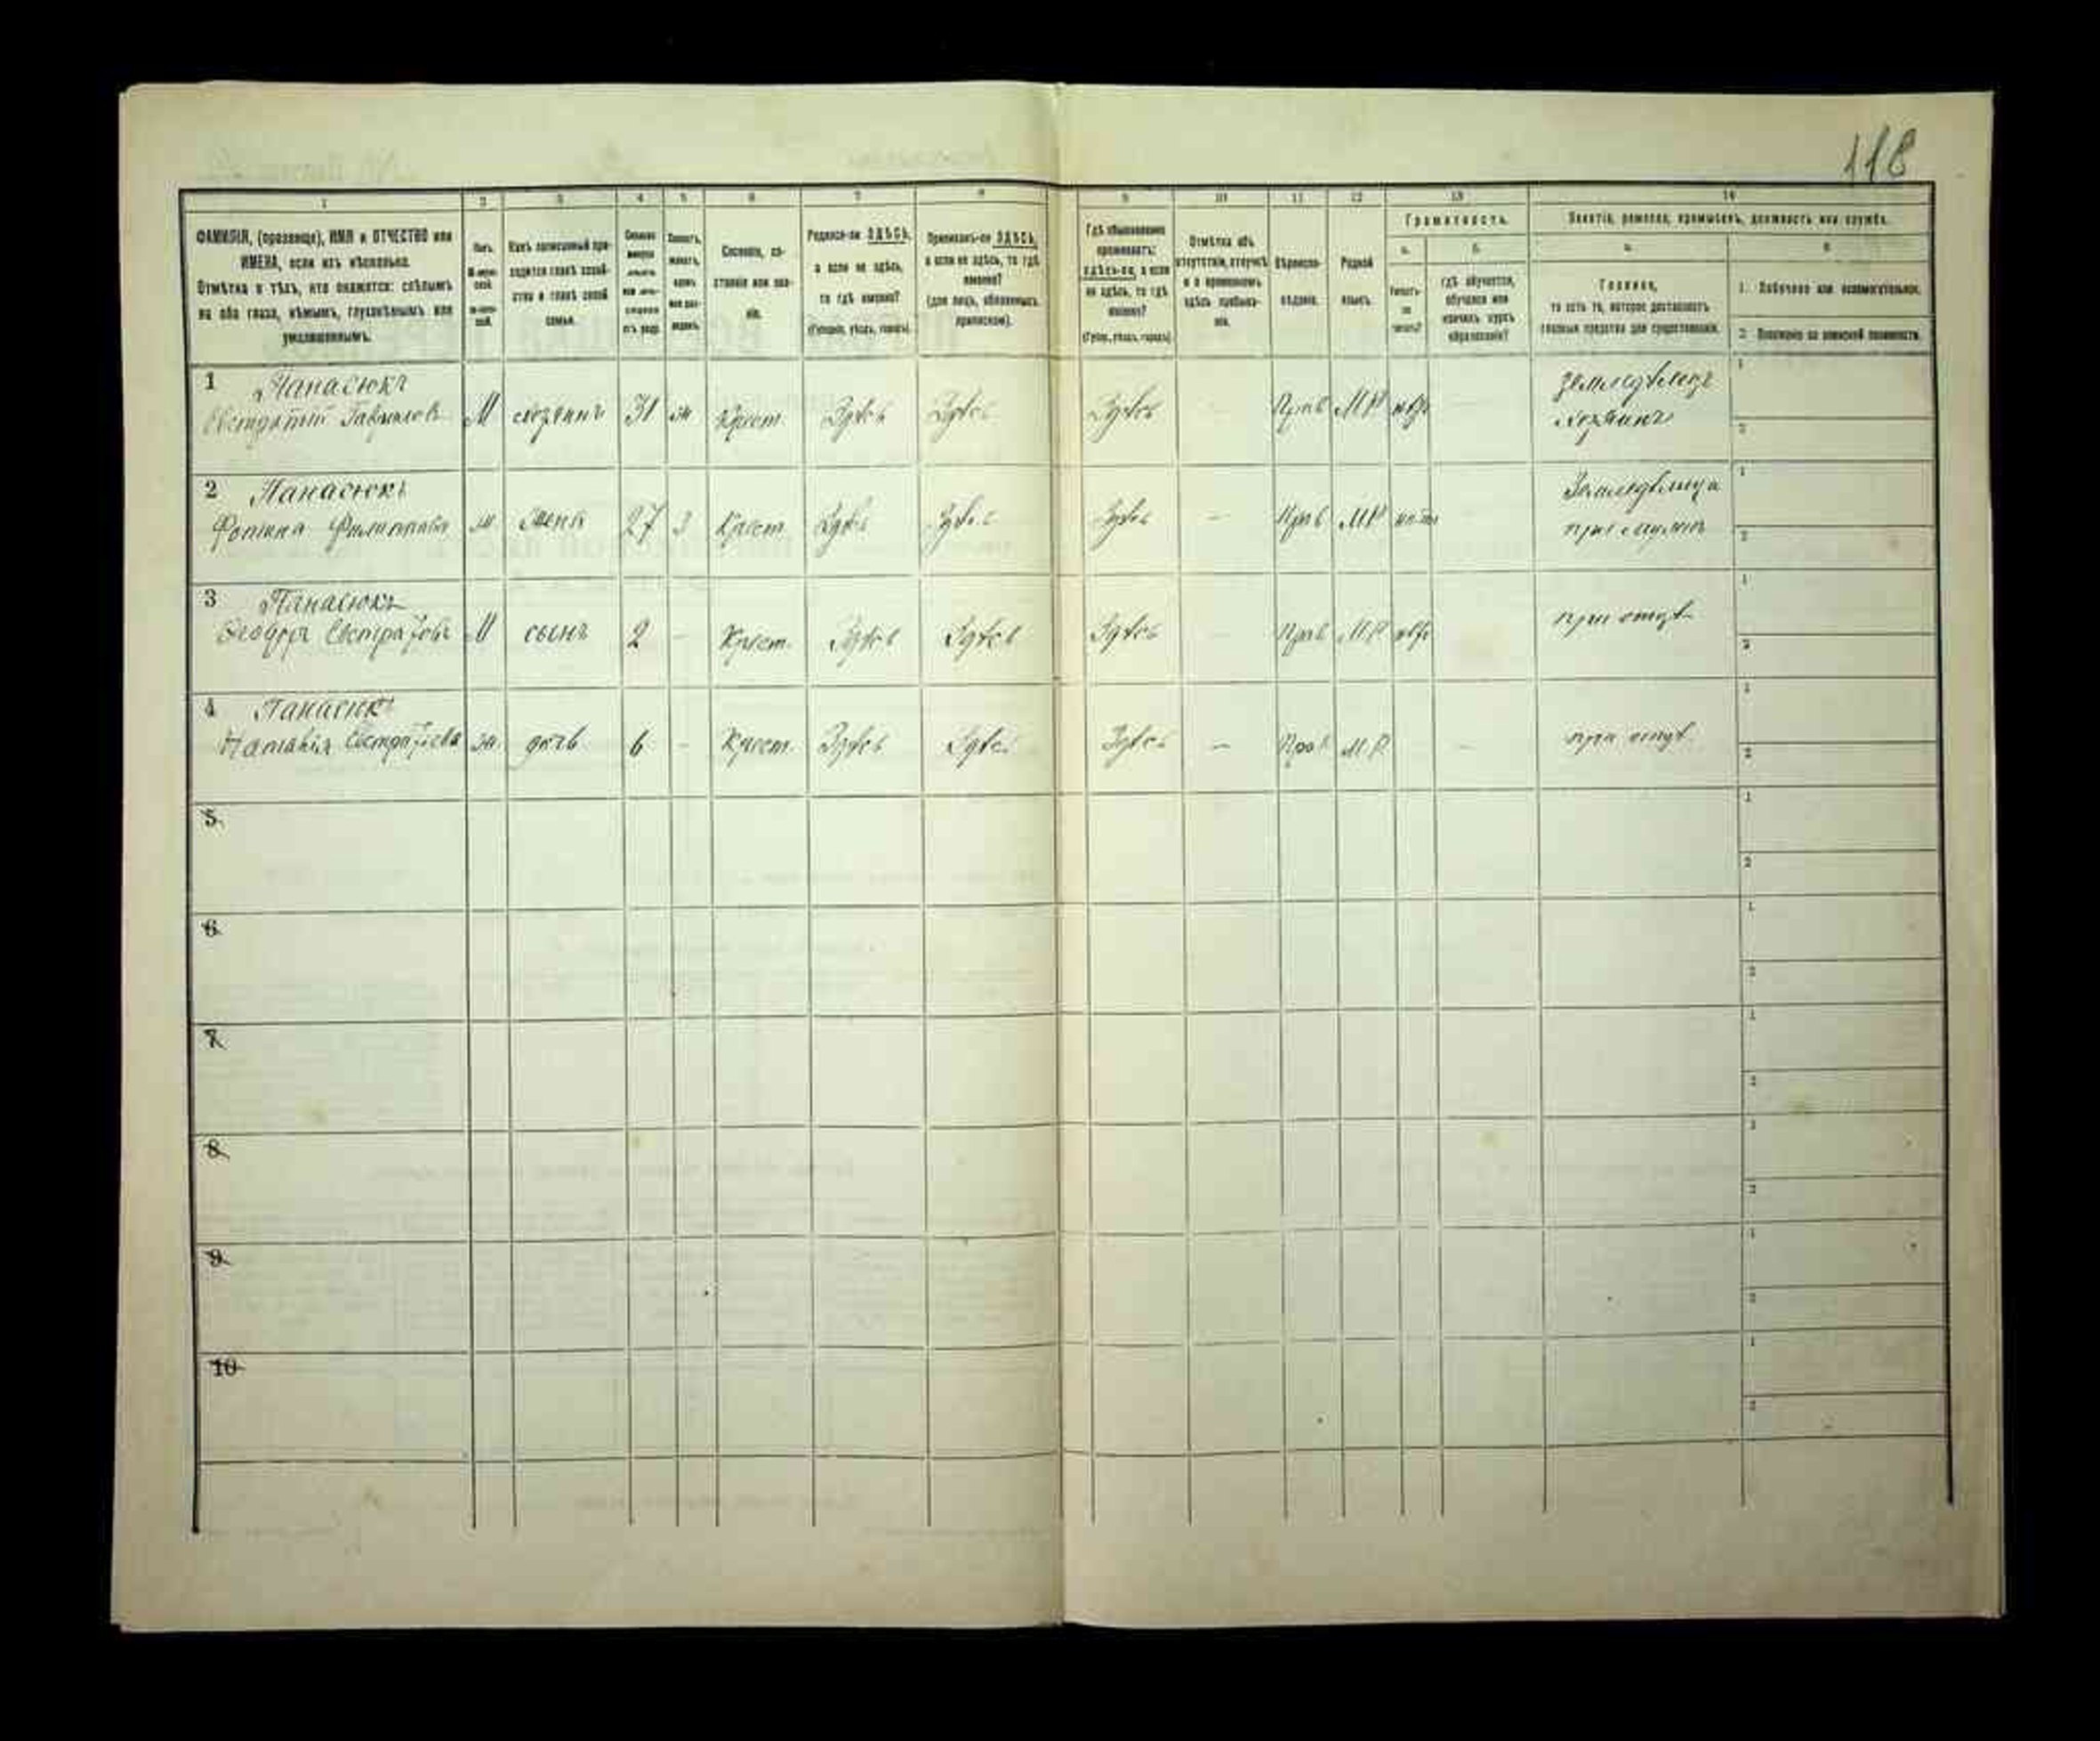 118
1 2 3 4 5 6 7 8 9 10 11 12 13 14
ФАМИЛІЯ, (прозвище), ИМЯ и ОТЧЕСТВО или
ИМЕНА, если ихъ нѣсколько.
Отмѣтка о тѣхъ, кто окажется: слѣпымъ
на оба глаза, нѣмымъ, глухонѣмымъ или
умалишеннымъ.
Полъ.
Какъ записанный при-
ходится главѣ хозяй-
ства и главѣ своей
семьи.
Сословіе, со-
стояніе или зва-
ніе.
Родился-ли ЗДѢСЬ,
а если не здѣсь,
то гдѣ именно?
(Губернія, уѣздъ, городъ).
Приписанъ-ли ЗДѢСЬ,
а если не здѣсь, то гдѣ
именно?
(для лицъ, обязанныхъ
припискою).
Гдѣ обыкновенно
проживаетъ:
здѣсь-ли, а если
не здѣсь, то гдѣ
именно?
(Губер., уѣздъ, городъ).
Отмѣтка объ
отсутствіи, отлучкѣ
и о временномъ
здѣсь пребыва-
ніи.
Вѣроиспо-
вѣданіе.
Родной
языкъ.
Грамотность.
а. б.
Умѣетъ
ли
читать?
гдѣ обучается,
обучался или
кончилъ курсъ
образованія?
Занятіе, ремесло, промыселъ, должность или служба.
а. б.
Главное,
то есть то, которое доставляетъ
главныя средства для существованія.
1. Побочное или вспомогательное.
2. Положеніе по воинской повинности.
1 Панасюкъ
Евстратій Гаврилов М хозяинъ 31 ж Крест. Здѣсь Здѣсь Здѣсь — Прав МР нѣтъ — Земледѣлецъ
хозяинъ
2 Панасюкъ
Фотина Филиппова ж жена 27 з Крест. Здѣсь Здѣсь Здѣсь — Прав МР нѣтъ Земледѣлица
при мужѣ
3 Панасюкъ
Феодоръ Евстратіевъ М сынъ 2 — Крест. Здѣсь Здѣсь Здѣсь — Прав МР нѣтъ при отцѣ
4 Панасюкъ
Наталія Евстратіева ж. дочь 6 — Крест. Здѣсь Здѣсь Здѣсь — Прав М.Р. — при отцѣ
5
6
7
8
9
10